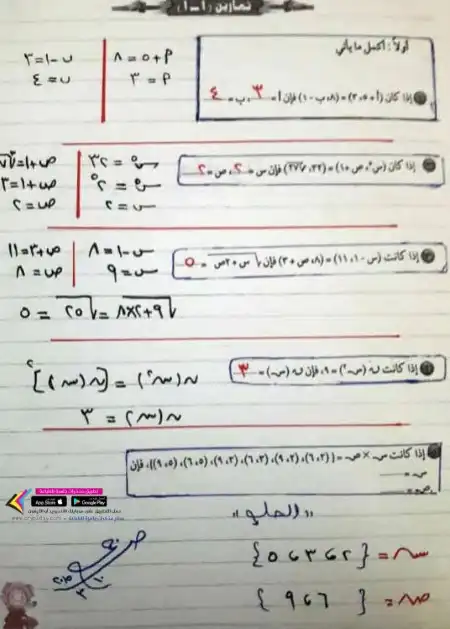 تمارين (١-١)
أولاً: أكمل ما يأتي
إذا كان (أ + ٥، ٣) = (٨، ب - ١) فإن أ = ٣، ب = ٤
٥ + م = ٨
م = ٣
ب - ١ = ٣
ب = ٤
إذا كان (س^٥، ص + ١) = (٣٢، ∛٢٧) فإن س = ٢، ص = ٢
س^٥ = ٣٢
س^٥ = ٢^٥
س = ٢
ص + ١ = ∛٢٧
ص + ١ = ٣
ص = ٢
إذا كانت (س - ١، ١١) = (٨، ص + ٣) فإن √(س + ٢ص) = ٥
س - ١ = ٨
س = ٩
ص + ٣ = ١١
ص = ٨
√(٩ + ٢×٨) = √٢٥ = ٥
إذا كانت ن (س^٢) = ٩، فإن ن (س) = ٣
ن (س^٢) = [ن (س)]^٢
ن (س) = ٣
إذا كانت س × ص = {(٢، ٦)، (٢، ٩)، (٣، ٦)، (٣، ٩)، (٥، ٦)، (٥، ٩)}، فإن
س =
ص =
"الحلو"
س = {٢، ٣، ٥}
ص = {٦، ٩}
App Store
Google Play